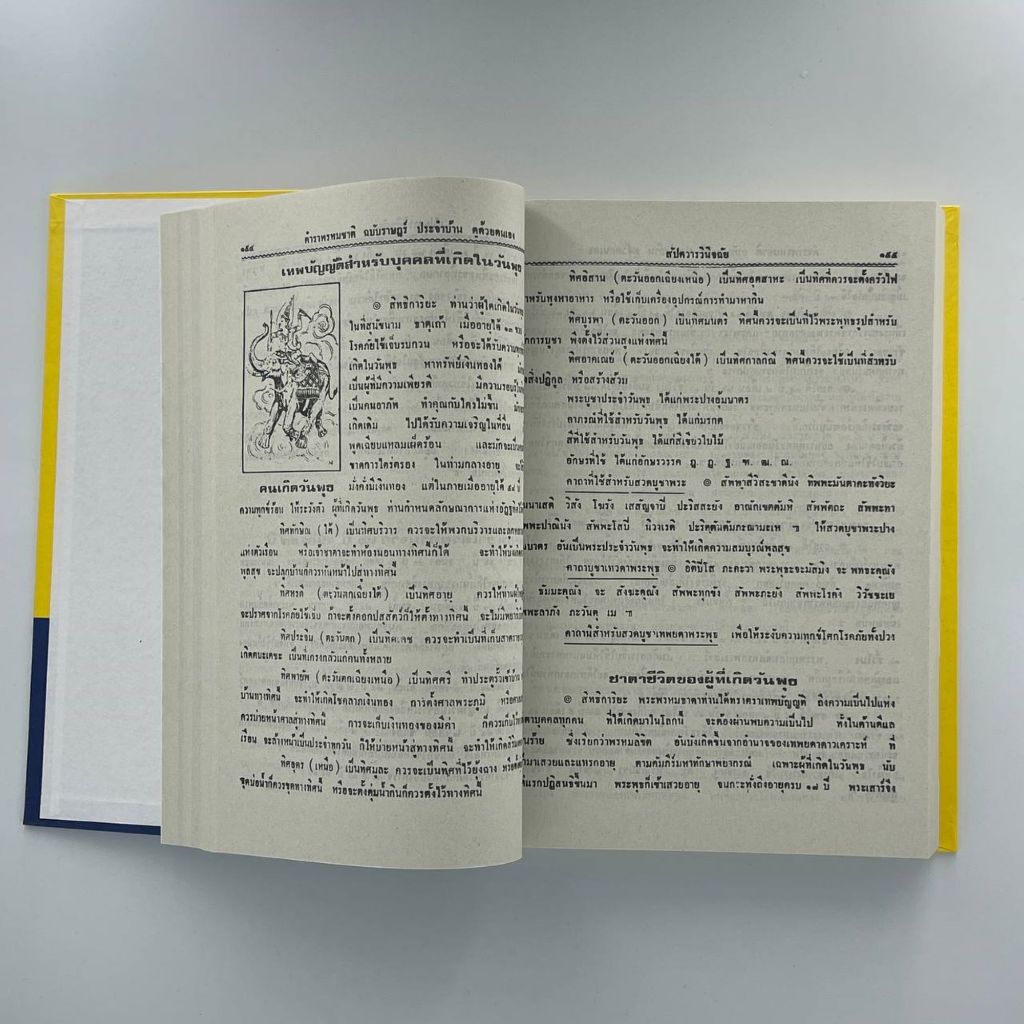 ๑๕๔
ตำราพรหมชาติ ฉบับราษฎร์ ประจำบ้าน ดูด้วยตนเอง
เทพบัญญัติสำหรับบุคคลที่เกิดในวันพุธ
๏ สิทธิการิยะ ท่านว่าผู้ใดเกิดใน
ในที่สุนัขนาม ธาตุเถ้า เมื่ออายุได้ ๑๓
โรคภัยไข้เจ็บรบกวน หรือจะได้รับความ
เกิดในวันพุธ หาทรัพย์เงินทองได้
เป็นผู้ที่มีความเพียรดี มีความรอบรู้
เป็นคนอาภัพ ทำคุณกับใครไม่ขึ้น
เกิดเดิม ไปได้รับความเจริญในที่อื่น
พูดเฉียบแหลมเผ็ดร้อน และมักจะเป็น
ขาดการไตร่ตรอง ในท่ามกลางอายุ
คนเกิดวันพุธ มั่งคั่งมีเงินทอง แต่ในภายเมื่ออายุได้ ๕๙ ปี
ความทุกข์ร้อน ให้ระวังตัว ผู้ที่เกิดวันพุธ ท่านกำหนดลักษณาการแห่ง
ทิศทักษิณ (ใต้) เป็นทิศบริวาร ควรจะให้พวกบริวารและลูกหลาน
แห่งตัวเรือน หรือเจ้าชาตาจะทำห้องนอนทางทิศนี้ก็ได้ จะทำให้บังเกิด
พูลสุข จะปลูกบ้านก็ควรหันหน้าไปสู่ทางทิศนี้
ทิศหรดี (ตะวันตกเฉียงใต้) เป็นทิศอายุ ควรให้ท่านผู้
จะปราศจากโรคภัยไข้เจ็บ ถ้าจะตั้งคอกปสุสัตว์ก็ให้ตั้งทางทิศนี้ จะไม่มี
ทิศประจิม (ตะวันตก) เป็นทิศเดช ควรจะทำเป็นที่เก็บสาตรา
เกิดตบะเดชะ เป็นที่เกรงกลัวแก่คนทั้งหลาย
ทิศพายัพ (ตะวันตกเฉียงเหนือ) เป็นทิศศรี ทำประตูรั้วเข้าบ้าน
บ้านทางทิศนี้ จะทำให้เกิดโชคลาภเงินทอง ถ้าตั้งศาลพระภูมิ หรือ
ควรบ่ายหน้าศาลทางทิศนี้ การจะเก็บเงินทองของมีค่า ก็ควรเก็บ
เรือน จะล้างหน้าเป็นประจำทุกวัน ก็ให้บ่ายหน้าสู่ทางทิศนี้ จะทำให้เกิด
ทิศอุดร (เหนือ) เป็นทิศมูละ ควรจะเป็นทิศที่ไว้ยุ้งฉาง หรือ
ขุดบ่อน้ำก็ควรขุดทางทิศนี้ หรือจะตั้งตุ่มน้ำกินก็ควรตั้งไว้ทางทิศนี้
สัปตวารวินิจฉัย ๑๕๕
ทิศอิสาน (ตะวันออกเฉียงเหนือ) เป็นทิศอุตสาหะ เป็นทิศที่ควรจะตั้งครัวไฟ
สำหรับหุงหาอาหาร หรือใช้เก็บเครื่องอุปกรณ์การทำมาหากิน
ทิศบูรพา (ตะวันออก) เป็นทิศมนตรี ทิศนี้ควรจะเป็นที่ไว้พระพุทธรูปสำหรับ
การบูชา พึงตั้งไว้ส่วนสูงแห่งทิศนี้
ทิศอาคเณย์ (ตะวันออกเฉียงใต้) เป็นทิศกาลกิณี ทิศนี้ควรจะใช้เป็นที่สำหรับ
สิ่งปฏิกูล หรือสร้างส้วม
พระบูชาประจำวันพุธ ได้แก่พระปางอุ้มบาตร
อาภรณ์ที่ใช้สำหรับวันพุธ ได้แก่มรกต
สีที่ใช้สำหรับวันพุธ ได้แก่สีเขียวใบไม้
อักษรที่ใช้ ได้แก่อักษรวรรค ฎ. ฏ. ฐ. ฑ. ฒ. ณ.
คาถาที่ใช้สำหรับสวดบูชาพระ ๏ สัพพาสีวิสะชาตีนัง ทิพพะมันตาคะทังวิยะ
นาเสติ วิสัง โฆรัง เสสัญจาปิ ปะริสสะยัง อาณักเขตตัมหิ สัพพัตถะ สัพพะทา
สัพพะปาณินัง สัพพะโสปิ นิวาเรติ ปะริตตันตัมภะณามะเห ฯ ให้สวดบูชาพระปาง
อุ้มบาตร อันเป็นพระประจำวันพุธ จะทำให้เกิดความสมบูรณ์พูลสุข
คาถาบูชาเทวดาพระพุธ ๏ อิติปิโส ภะคะวา พระพุธะจะมัสมิง จะ พุทธะคุณัง
ธัมมะคุณัง จะ สังฆะคุณัง สัพพะทุกขัง สัพพะภะยัง สัพพะโรคัง วิวัชชะเย
สัพพะลาภัง ภะวันตุ เม ฯ
คาถานี้สำหรับสวดบูชาเทพยดาพระพุธ เพื่อให้ระงับความทุกข์โศกโรคภัยทั้งปวง
ชาตาชีวิตของผู้ที่เกิดวันพุธ
๏ สิทธิการิยะ พระพรหมชาดาท่านได้ทราตราเทพบัญญัติ ถึงความเป็นไปแห่ง
บุคคลทุกคน ที่ได้เกิดมาในโลกนี้ จะต้องผ่านพบความเป็นไป ทั้งในด้านดีแล
ร้าย ซึ่งเรียกว่าพรหมลิขิต อันบังเกิดขึ้นจากอำนาจของเทพยดาดาวเคราะห์ ที่
มาเสวยและแทรกอายุ ตามคัมภีร์มหาทักษาพยากรณ์ เฉพาะผู้ที่เกิดในวันพุธ นับ
แรกปฏิสนธิขึ้นมา พระพุธก็เข้าเสวยอายุ จนกระทั่งถึงอายุครบ ๑๗ ปี พระเสาร์จึง